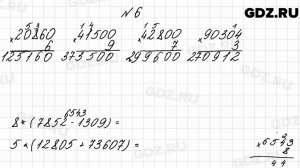 GDZ.RU
№6
× 20860 × 41500 × 42800 × 90304
6 9 7 3
125160 373500 299600 270912
6543
8 * (7852 - 1309) =
5 * (12805 + 73607) =
× 6543
8
44
GDZ.RU